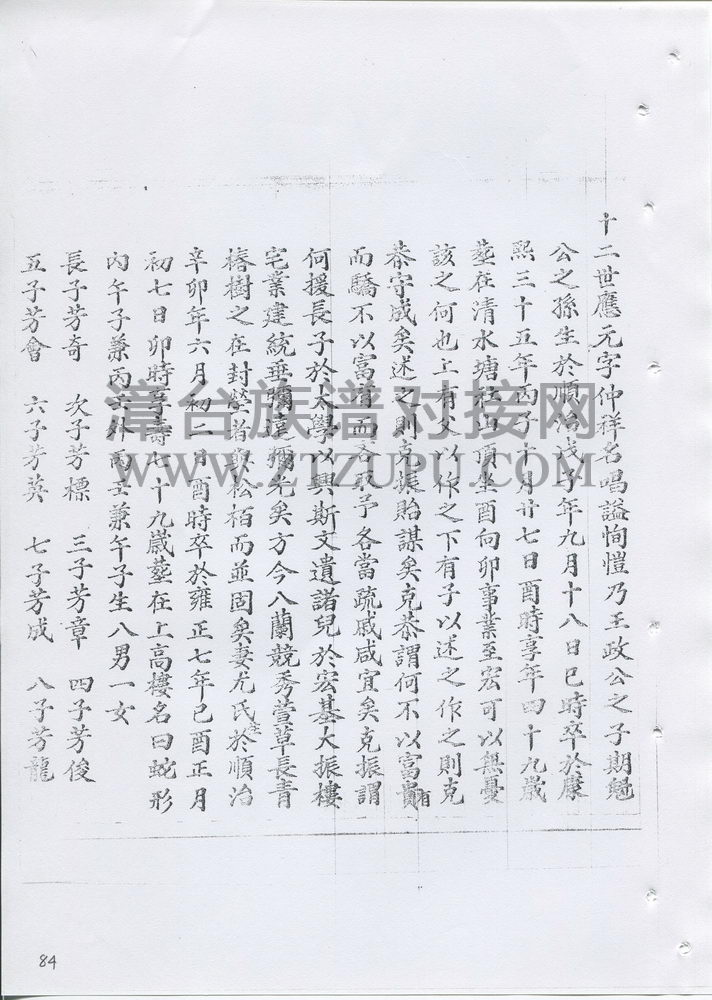 十二世應元字仲祥名唱謚恂愷乃王政公之子期魁
公之孫生於順治戊子年九月十八日巳時卒於康
熙三十五年丙子十月廿七日酉時享年四十九歲
塟在清水塘 山頂坐酉向卯事業至宏可以無憂
該之何也上有父以作之下有子以述之作之則克
恭守成矣述之則克振貽謀矣克恭謂何不以富貴
有
而驕不以富 而吝取予各當疏戚咸宜矣克振謂
何援長子於太學以興斯文遺諸兒於宏基大振樓
宅業建統垂彌遠彌光矣方今八蘭競秀萱草長青
椿樹之在封塋者與松栢而並固矣妻尤氏生於順治
辛卯年六月初二日酉時卒於雍正七年己酉正月
初七日卯時享壽七十九歲塟在上高樓名曰蛇形
內午子兼丙壬外丙壬兼午子生八男一女
長子芳奇 次子芳標 三子芳章 四子芳俊
五子芳會 六子芳英 七子芳成 八子芳龍
漳台族谱对接网
WWW.ZTZUPU.COM
84